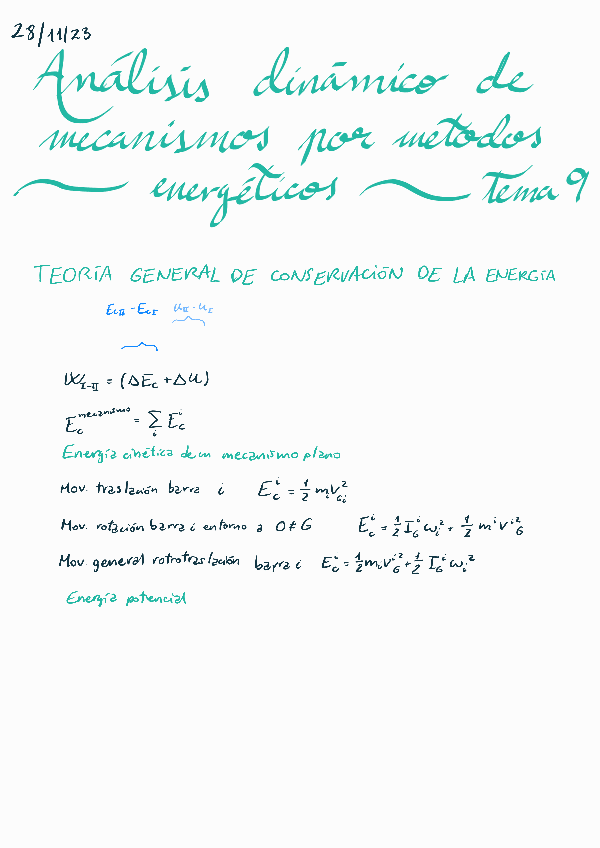 28/11/23
Análisis dinámico de
mecanismos por metodos
energéticos
tema 9
TEORÍA GENERAL DE CONSERVACIÓN DE LA ENERGÍA
E_cII - E_cI  u_II - u_I
W_I-II = (ΔE_c + Δu)
E_c^mecanismo = Σ_i E_c^i
Energía cinética de un mecanismo plano
Mov. traslación barra i  E_c^i = 1/2 m_i V_Gi^2
Mov. rotación barra i entorno a O≠G  E_c^i = 1/2 I_G^i ω_i^2 + 1/2 m^i v^i2_G
Mov. general rototraslación barra i  E_c^i = 1/2 m_i v_G^i2 + 1/2 I_G^i ω_i^2
Energía potencial